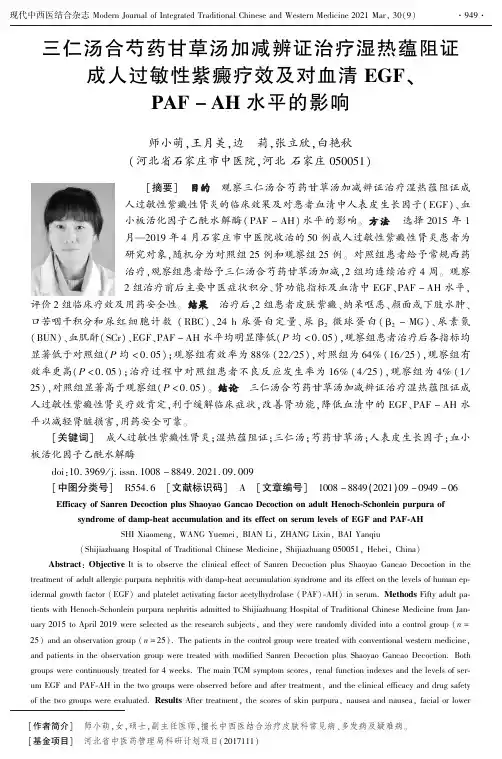 现代中西医结合杂志 Modern Journal of Integrated Traditional Chinese and Western Medicine 2021 Mar, 30(9) ·949·
三仁汤合芍药甘草汤加减辨证治疗湿热蕴阻证
成人过敏性紫癜疗效及对血清 EGF、
PAF-AH 水平的影响
师小萌,王月美,边 莉,张立欣,白艳秋
(河北省石家庄市中医院,河北 石家庄 050051)
[摘要] 目的 观察三仁汤合芍药甘草汤加减辨证治疗湿热蕴阻证成
人过敏性紫癜肾炎的临床效果及对患者血清中人表皮生长因子(EGF)、血
小板活化因子乙酰水解酶(PAF-AH)水平的影响。方法 选择 2015 年 1
月—2019 年 4 月石家庄市中医院收治的 50 例成人过敏性紫癜性肾炎患者为
研究对象,随机分为对照组 25 例和观察组 25 例。对照组患者给予常规西药
治疗,观察组患者给予三仁汤合芍药甘草汤加减,2 组均连续治疗 4 周。观察
2 组治疗前后主要中医症状积分、肾功能指标及血清中 EGF、PAF-AH 水平,
评价 2 组临床疗效及用药安全性。结果 治疗后,2 组患者皮肤紫癜、纳呆呕恶、颜面或下肢水肿、
口苦咽干积分和尿红细胞计数 (RBC)、24 h 尿蛋白定量、尿 β2 微球蛋白(β2-MG)、尿素氮
(BUN)、血肌酐(SCr)、EGF、PAF-AH 水平均明显降低(P 均<0.05),观察组患者治疗后各指标均
显著低于对照组(P 均<0.05);观察组有效率为 88% (22/25),对照组为 64% (16/25),观察组有
效率更高(P<0.05);治疗过程中对照组患者不良反应发生率为 16% (4/25),观察组为 4% (1/
25),对照组显著高于观察组(P<0.05)。结论 三仁汤合芍药甘草汤加减辨证治疗湿热蕴阻证成
人过敏性紫癜性肾炎疗效肯定,利于缓解临床症状,改善肾功能,降低血清中的 EGF、PAF-AH 水
平以减轻肾脏损害,用药安全可靠。
[关键词] 成人过敏性紫癜肾炎;湿热蕴阻证;三仁汤;芍药甘草汤;人表皮生长因子;血小
板活化因子乙酰水解酶
doi:10.3969/j.issn.1008-8849.2021.09.009
[中图分类号] R554.6 [文献标识码] A [文章编号] 1008-8849(2021)09-0949-06
Efficacy of Sanren Decoction plus Shaoyao Gancao Decoction on adult Henoch-Schonlein purpura of
syndrome of damp-heat accumulation and its effect on serum levels of EGF and PAF-AH
SHI Xiaomeng, WANG Yuemei, BIAN Li, ZHANG Lixin, BAI Yanqiu
(Shijiazhuang Hospital of Traditional Chinese Medicine, Shijiazhuang 050051, Hebei, China)
Abstract: Objective It is to observe the clinical effect of Sanren Decoction plus Shaoyao Gancao Decoction in the
treatment of adult allergic purpura nephritis with damp-heat accumulation syndrome and its effect on the levels of human ep-
idermal growth factor (EGF) and platelet activating factor acetylhydrolase (PAF)-AH) in serum. Methods Fifty adult pa-
tients with Henoch-Schonlein purpura nephritis admitted to Shijiazhuang Hospital of Traditional Chinese Medicine from Jan-
uary 2015 to April 2019 were selected as the research subjects, and they were randomly divided into a control group (n =
25) and an observation group (n = 25). The patients in the control group were treated with conventional western medicine,
and patients in the observation group were treated with modified Sanren Decoction plus Shaoyao Gancao Decoction. Both
groups were continuously treated for 4 weeks. The main TCM symptom scores, renal function indexes and the levels of ser-
um EGF and PAF-AH in the two groups were observed before and after treatment, and the clinical efficacy and drug safety
of the two groups were evaluated. Results After treatment, the scores of skin purpura, nausea and nausea, facial or lower
[作者简介] 师小萌,女,硕士,副主任医师,擅长中西医结合治疗皮肤科常见病、多发病及疑难病。
[基金项目] 河北省中医药管理局科研计划项目(2017111)